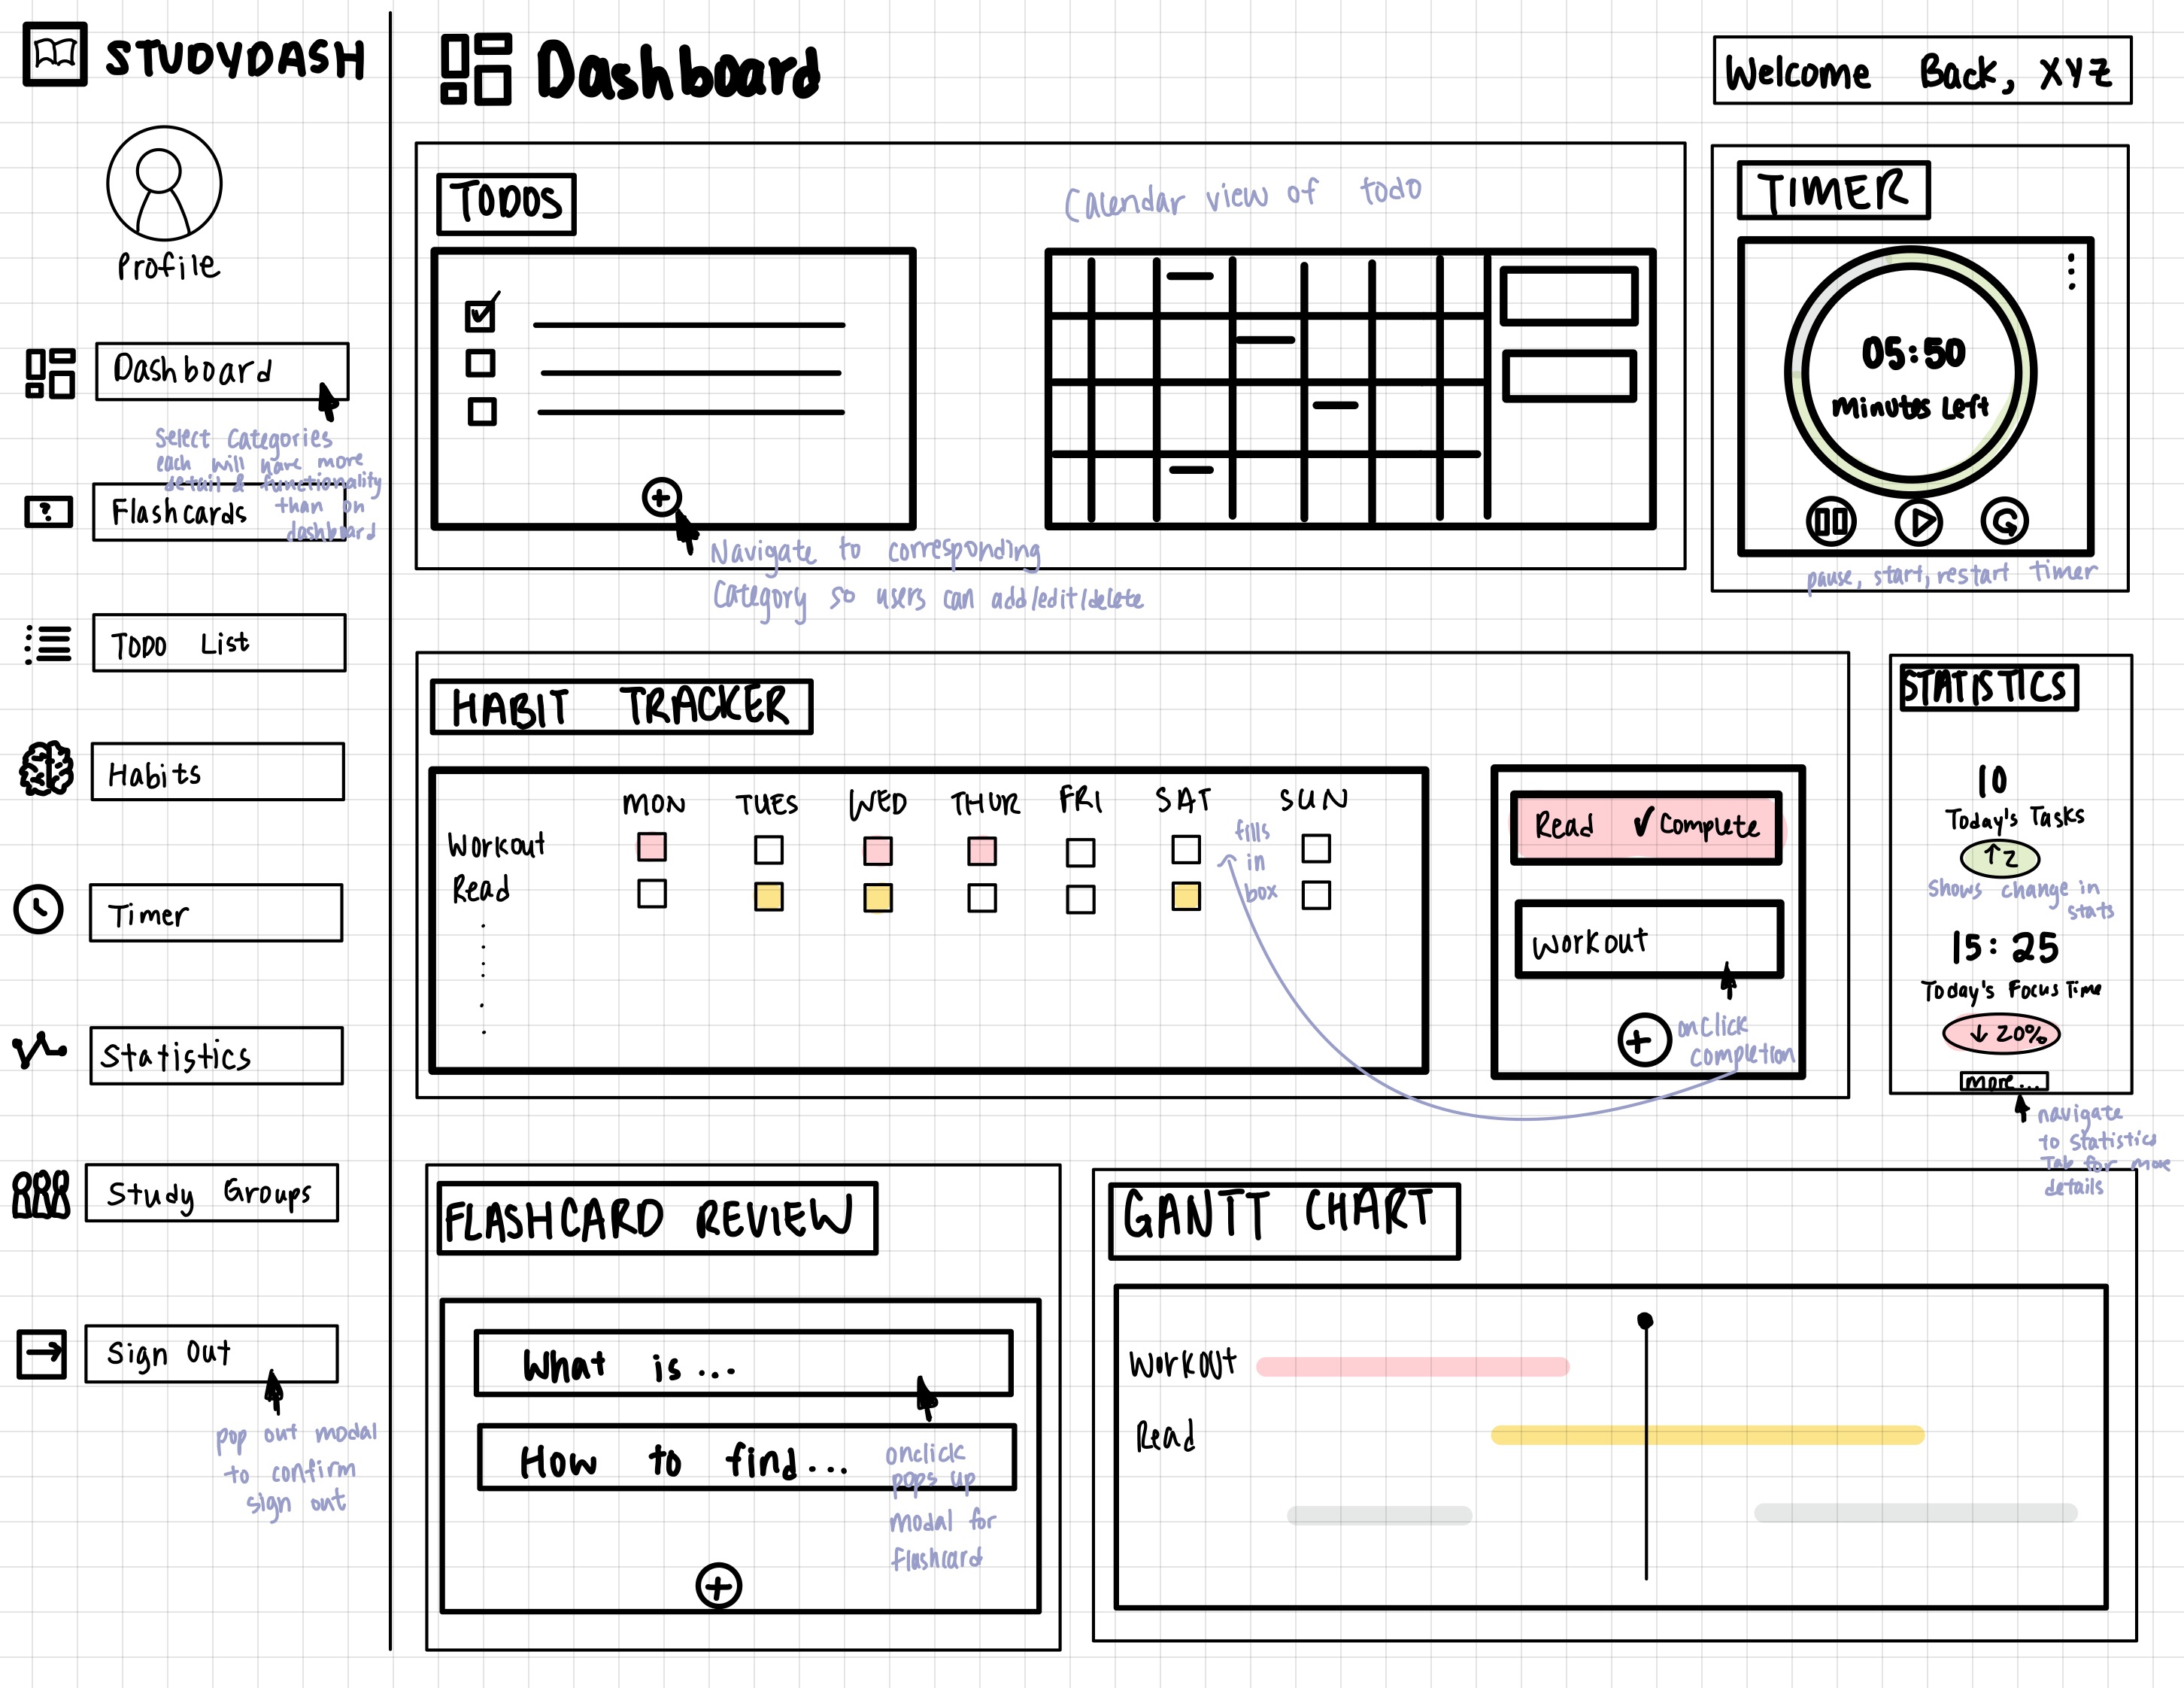 STUDYDASH
Profile
Dashboard
Select Categories
each will have more
detail & functionality
than on
dashboard
Flashcards
TODO List
Habits
Timer
Statistics
Study Groups
Sign Out
pop out modal
to confirm
sign out
Dashboard
Welcome Back, XYZ
TODOS
Calendar view of todo
Navigate to corresponding
Category so users can add/edit/delete
TIMER
05:50
Minutes Left
pause, start, restart timer
HABIT TRACKER
MON TUES WED THUR FRI SAT SUN
Workout
Read
fills
in
box
Read ✓ Complete
Workout
onclick
completion
STATISTICS
10
Today's Tasks
↑2
Shows change in
stats
15:25
Today's Focus Time
↓ 20%
more...
navigate
to Statistics
Tab for more
details
FLASHCARD REVIEW
What is...
How to find...
onclick
pops up
modal for
flashcard
GANTT CHART
Workout
Read